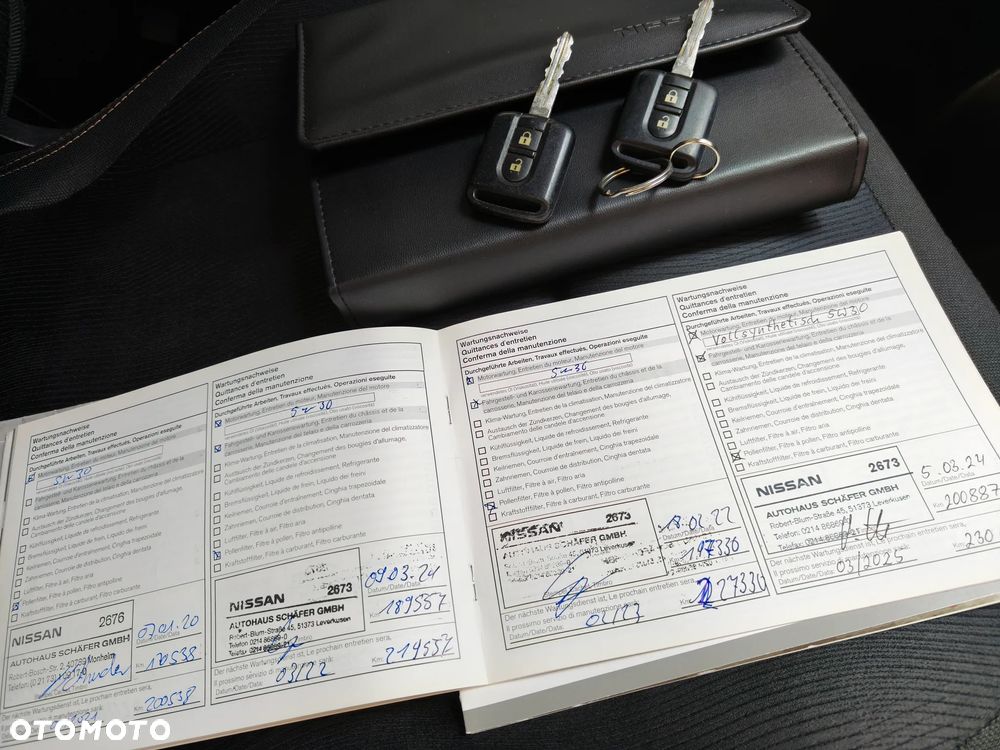 NISSAN
Wartungsnachweise
Quittances d'entretien
Conferma della manutenzione
Durchgeführte Arbeiten, Travaux effectués, Operazioni eseguite
Motorwartung, Entretien du moteur, Manutenzione del motore
5w30
Fahrgestell- und Karosseriewartung, Entretien du châssis et de la
carrosserie, Manutenzione del telaio e della carrozzeria
Klima-Wartung, Entretien de la climatisation, Manutenzione del climatizzatore
Austausch der Zündkerzen, Changement des bougies d'allumage,
Cambiamento delle candele d'accensione
Kühlflüssigkeit, Liquide de refroidissement, Refrigerante
Bremsflüssigkeit, Liquide de frein, Liquido dei freni
Keilriemen, Courroie d'entraînement, Cinghia trapezoidale
Zahnriemen, Courroie de distribution, Cinghia dentata
Luftfilter, Filtre à air, Filtro aria
Pollenfilter, Filtre à pollen, Filtro antipolline
Kraftstofffilter, Filtre à carburant, Filtro carburante
NISSAN 2676
AUTOHAUS SCHÄFER GMBH
Robert-Bosch-Str. 2, 40789 Monheim
07.01.20
Datum/Date/Data:
Km: 170538
Der nächste Wartungsdienst ist, Le prochain entretien sera,
Km: 200538
Wartungsnachweise
Quittances d'entretien
Conferma della manutenzione
Durchgeführte Arbeiten, Travaux effectués, Operazioni eseguite
Motorwartung, Entretien du moteur, Manutenzione del motore
5w30
Fahrgestell- und Karosseriewartung, Entretien du châssis et de la
carrosserie, Manutenzione del telaio e della carrozzeria
Klima-Wartung, Entretien de la climatisation, Manutenzione del climatizzatore
Austausch der Zündkerzen, Changement des bougies d'allumage,
Cambiamento delle candele d'accensione
Kühlflüssigkeit, Liquide de refroidissement, Refrigerante
Bremsflüssigkeit, Liquide de frein, Liquido dei freni
Keilriemen, Courroie d'entraînement, Cinghia trapezoidale
Zahnriemen, Courroie de distribution, Cinghia dentata
Luftfilter, Filtre à air, Filtro aria
Pollenfilter, Filtre à pollen, Filtro antipolline
Kraftstofffilter, Filtre à carburant, Filtro carburante
NISSAN 2673
AUTOHAUS SCHÄFER GMBH
Robert-Blum-Straße 45, 51373 Leverkusen
Telefon 0214 86869-0
Datum/Date/Data:
Km: 189557
Der nächste Wartungsdienst ist, Le prochain entretien sera,
Il prossimo servizio di manutenzione sarà
Datum/Date/Data: 03/22
Km: 219557
Wartungsnachweise
Quittances d'entretien
Conferma della manutenzione
Durchgeführte Arbeiten, Travaux effectués, Operazioni eseguite
Motorwartung, Entretien du moteur, Manutenzione del motore
5w30
Fahrgestell- und Karosseriewartung, Entretien du châssis et de la
carrosserie, Manutenzione del telaio e della carrozzeria
Klima-Wartung, Entretien de la climatisation, Manutenzione del climatizzatore
Austausch der Zündkerzen, Changement des bougies d'allumage,
Cambiamento delle candele d'accensione
Kühlflüssigkeit, Liquide de refroidissement, Refrigerante
Bremsflüssigkeit, Liquide de frein, Liquido dei freni
Keilriemen, Courroie d'entraînement, Cinghia trapezoidale
Zahnriemen, Courroie de distribution, Cinghia dentata
Luftfilter, Filtre à air, Filtro aria
Pollenfilter, Filtre à pollen, Filtro antipolline
Kraftstofffilter, Filtre à carburant, Filtro carburante
NISSAN 2673
AUTOHAUS SCHÄFER GMBH
45, 51373 Leverkusen
18.02.22
Datum/Date/Data:
Km: 197330
Der nächste Wartungsdienst ist, Le prochain entretien sera,
Il prossimo servizio di manutenzione sarà
Datum/Date/Data: 02/23
227330
Wartungsnachweise
Quittances d'entretien
Conferma della manutenzione
Durchgeführte Arbeiten, Travaux effectués, Operazioni eseguite
Motorwartung, Entretien du moteur, Manutenzione del motore
Vollsynthetisch 5W30
Fahrgestell- und Karosseriewartung, Entretien du châssis et de la
carrosserie, Manutenzione del telaio e della carrozzeria
Klima-Wartung, Entretien de la climatisation, Manutenzione del climatizzatore
Austausch der Zündkerzen, Changement des bougies d'allumage,
Cambiamento delle candele d'accensione
Kühlflüssigkeit, Liquide de refroidissement, Refrigerante
Bremsflüssigkeit, Liquide de frein, Liquido dei freni
Keilriemen, Courroie d'entraînement, Cinghia trapezoidale
Zahnriemen, Courroie de distribution, Cinghia dentata
Luftfilter, Filtre à air, Filtro aria
Pollenfilter, Filtre à pollen, Filtro antipolline
Kraftstofffilter, Filtre à carburant, Filtro carburante
NISSAN 2673
AUTOHAUS SCHÄFER GMBH
Robert-Blum-Straße 45, 51373 Leverkusen
Datum/Date/Data:
Km: 200887
Der nächste Wartungsdienst ist, Le prochain entretien sera,
Il prossimo servizio di manutenzione sarà
Datum/Date/Data: 03/2025
Km: 230
OTOMOTO